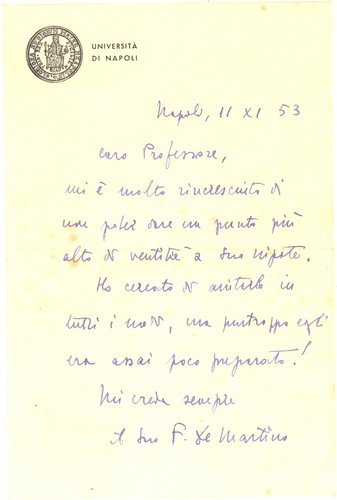 UNIVERSITÀ
DI NAPOLI
Napoli, 11 XI 53
caro Professore,
mi è molto rincresciuto di
non poter dare un punto più
alto di ventitrè a Suo nipote.
Ho cercato di aiutarlo in
tutti i modi, ma purtroppo egli
era assai poco preparato!
Mi creda sempre
il Suo F. De Martino